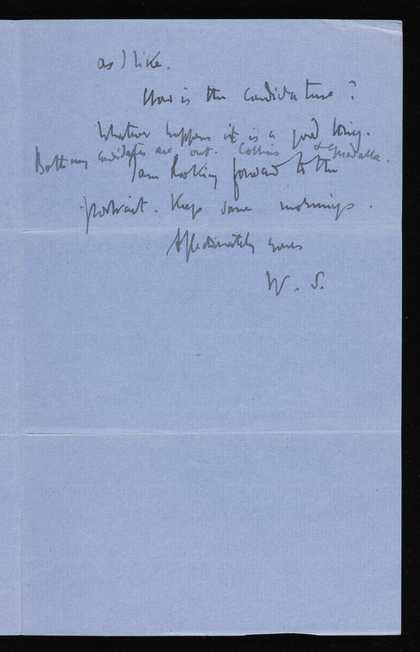 as I like.
How is the candidature?
Whatever happens it is a good thing.
Both my candidates are out. Collins & Guedalla.
I am looking forward to the
portrait. Keep some mornings.
Affectionately yours
W. S.